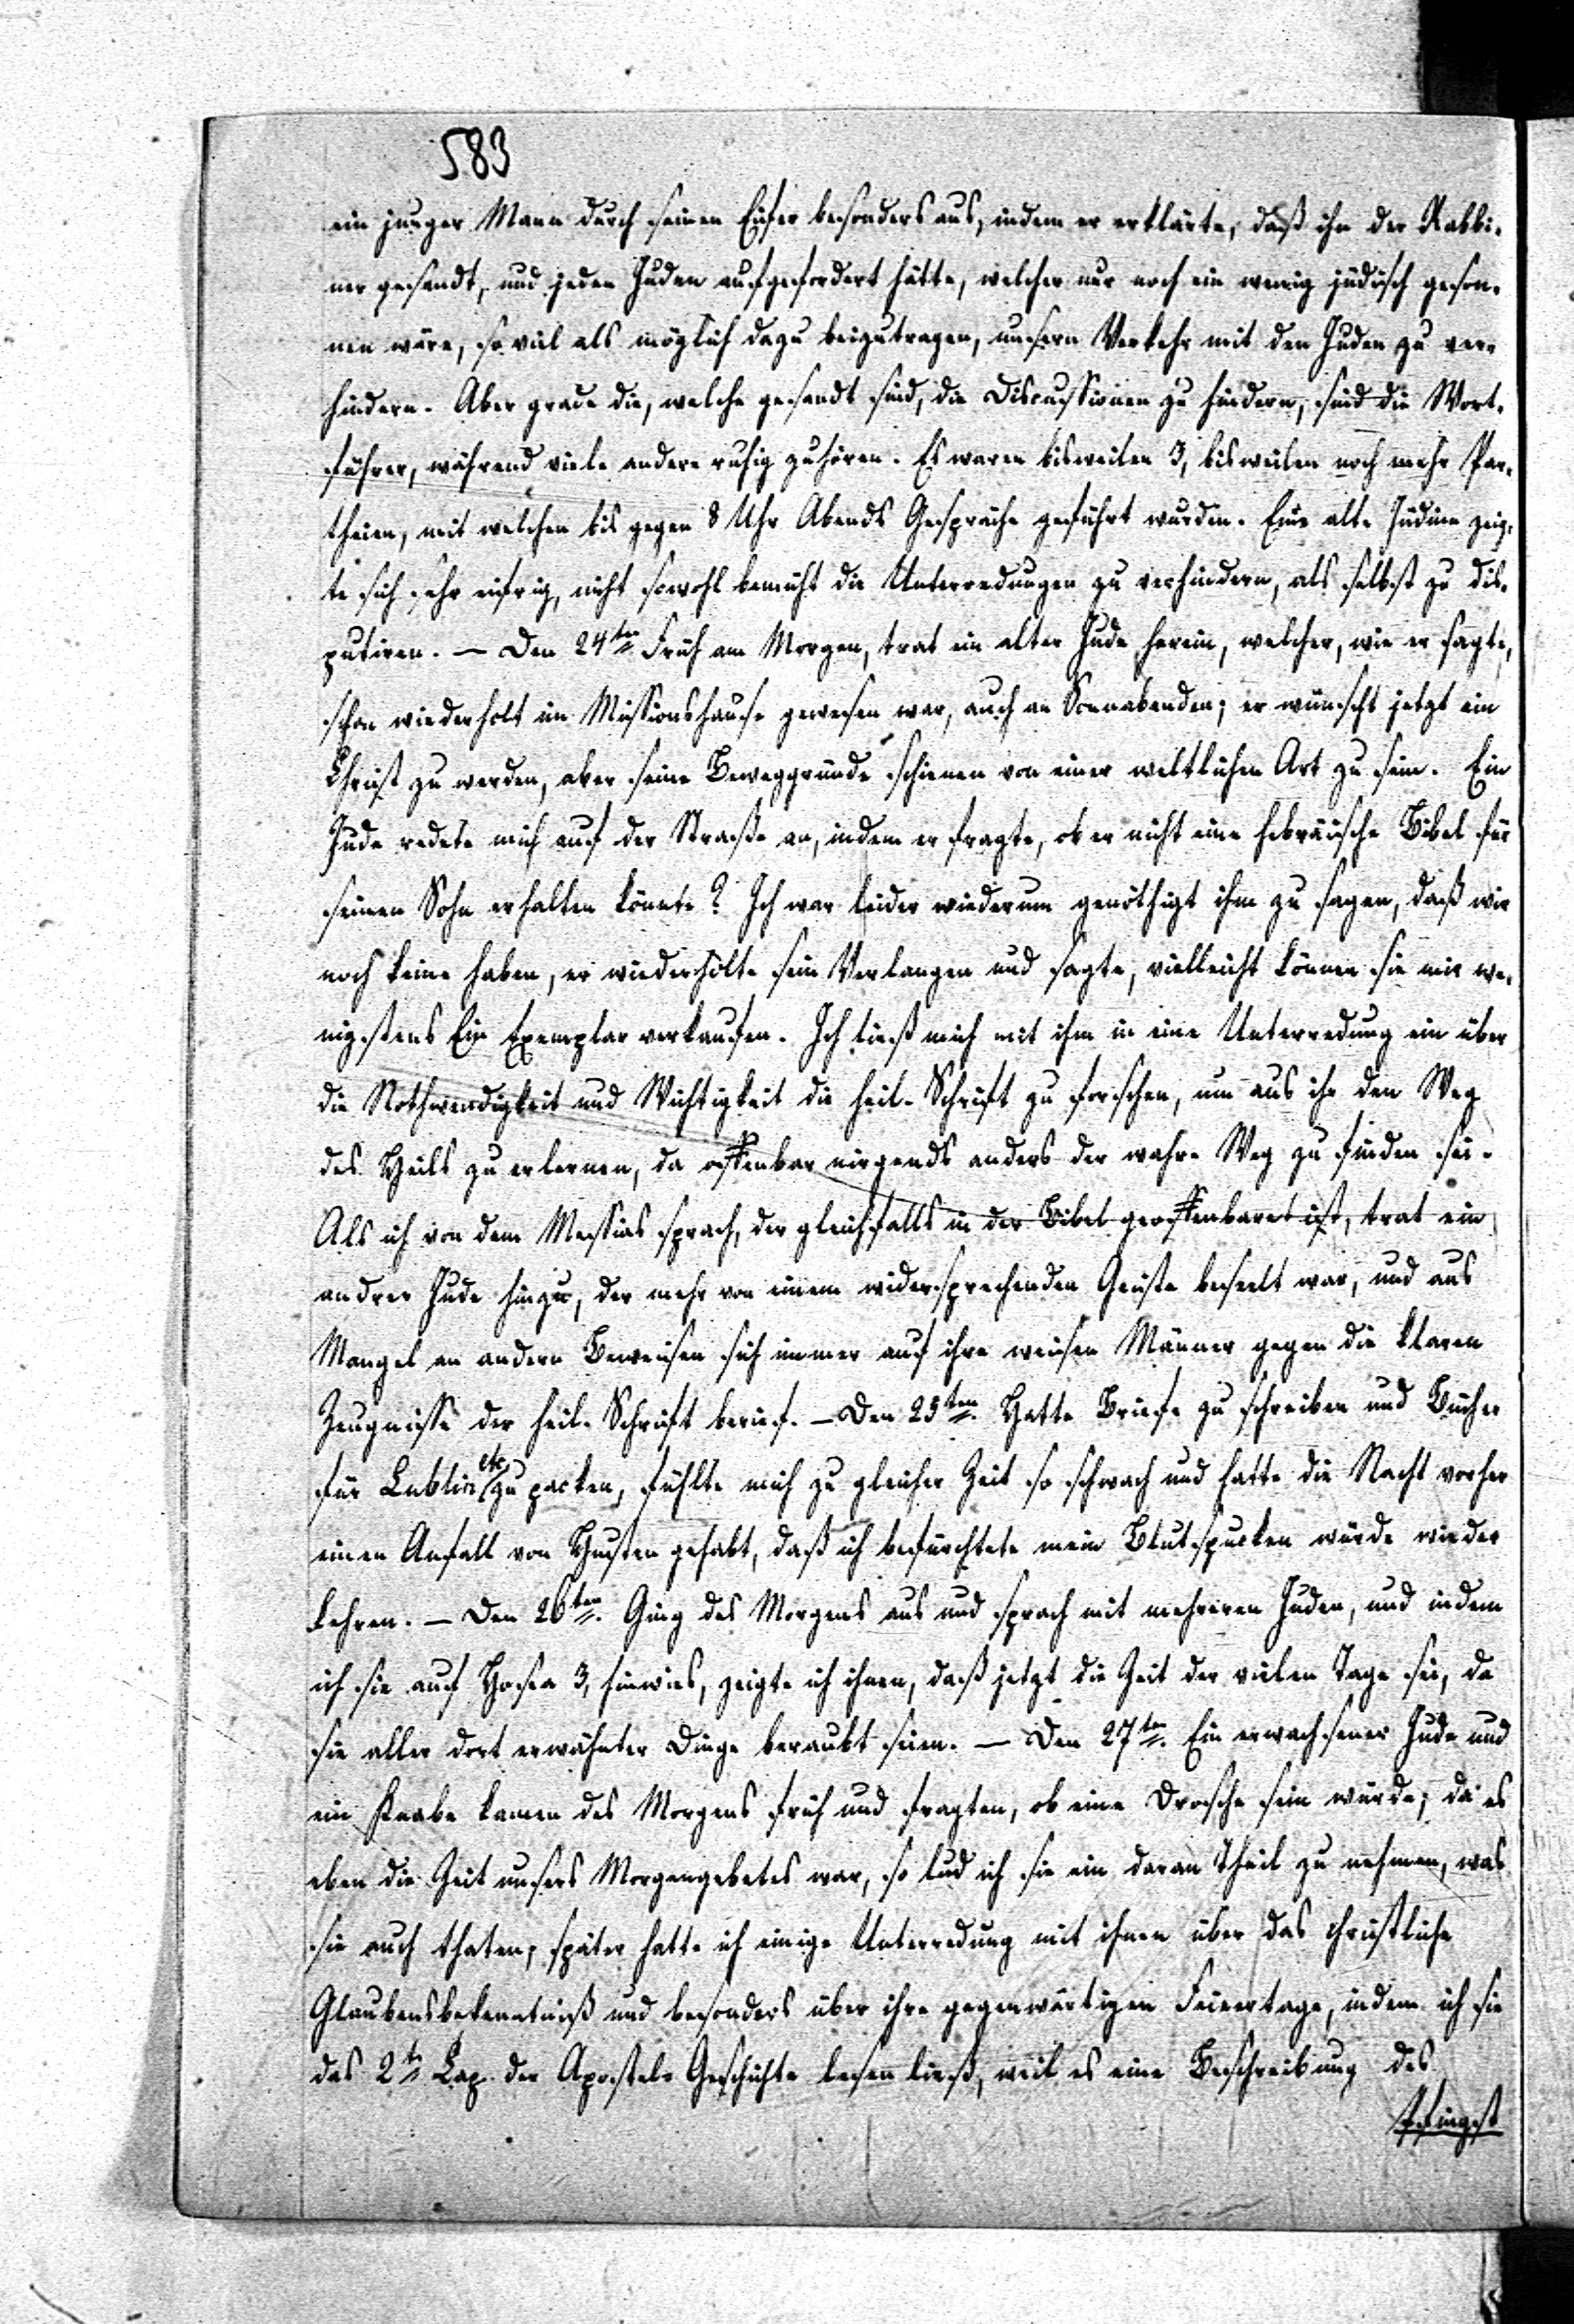 583
ein junger Mann durch seinen Eifer besonders aus, indem er erklärte, daß ihn der Rabbi-
ner gesandt, und jeden Juden aufgefordert hätte, welcher nur noch ein wenig jüdisch geson-
nen wäre, so viel als möglich dazu beizutragen, unsern Verkehr mit den Juden zu ver-
hindern. Aber grade die, welche gesandt sind, die Discussionen zu hindern, sind die Wort-
führer, während viele andere ruhig zuhören. Es waren bisweilen 3, bisweilen noch mehr Par-
theien, mit welchen bis gegen 8 Uhr Abends Gespräche geführt wurden. Eine alte Jüdinn zeig-
te sich sehr eifrig, nicht sowohl bemüht die Unterredungen zu verhindern, als selbst zu dis-
putiren. – Den 24ten Früh am Morgen, trat ein alter Jude herein, welcher, wie er sagte,
schon wiederholt im Missionshause gewesen war, auch an Sonnabenden; er wünscht jetzt ein
Christ zu werden, aber seine Beweggründe schienen von einer weltlichen Art zu sein. Ein
Jude redete mich auf der Straße an, indem er fragte, ob er nicht eine hebräische Bibel für
seinen Sohn erhalten könnte? Ich war leider wiederum genöthigt ihm zu sagen, daß wir
noch keine haben, er wiederholte sein Verlangen und sagte, vielleicht können sie mir we-
nigstens Ein Exemplar verkaufen. Ich ließ mich mit ihm in eine Unterredung ein über
die Nothwendigkeit und Wichtigkeit die heil. Schrift zu forschen, um aus ihr den Weg
des Heils zu erlernen, da offenbar nirgends anders der wahre Weg zu finden sei.
Als ich von dem Messias sprach, der gleichfalls in der Bibel geoffenbaret ist, trat ein
andrer Jude hinzu, der mehr von einem widersprechenden Geiste beseelt war, und aus
Mangel an andern Beweisen sich immer auf ihre weisen Männer gegen die klaren
Zeugnisse der heil. Schrift berief. – Den 25ten. Hatte Briefe zu schreiben und Bücher
für Lublin etc zu packen, fühlte mich zu gleicher Zeit so schwach und hatte die Nacht vorher
einen Anfall von Husten gehabt, daß ich befürchtete mein Blutspucken würde wieder
kehren. – Den 26ten. Ging des Morgens aus und sprach mit mehreren Juden, und indem
ich sie auf Hosea 3, hinwies, zeigte ich ihnen, daß jetzt die Zeit der vielen Tage sei, da
sie aller dort erwähnter Dinge beraubt seien. – Den 27ten. Ein erwachsener Jude und
ein Knabe kamen des Morgens früh und fragten, ob eine Drosche sein würde; da es
eben die Zeit unsers Morgengebetes war, so lud ich sie ein daran Theil zu nehmen, was
sie auch thaten; später hatte ich einige Unterredung mit ihnen über das christliche
Glaubensbekenntniß und besonders über ihre gegenwärtigen Feiertage, indem ich sie
das 2te Cap. der Apostel-Geschichte lesen ließ, weil es eine Beschreibung des
Pfingst